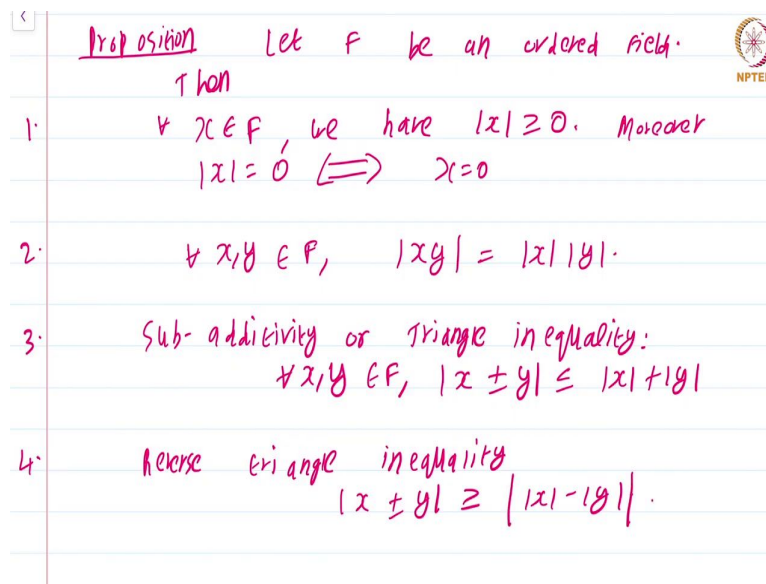 Proposition Let F be an ordered field.
Then
1. ∀ x ∈ F, we have |x| ≥ 0. Moreover
|x| = 0 ⟺ x = 0
2. ∀ x, y ∈ F, |xy| = |x| |y|.
3. Sub-additivity or Triangle inequality:
∀ x, y ∈ F, |x ± y| ≤ |x| + |y|
4. Reverse triangle inequality
|x ± y| ≥ ||x| - |y||.
NPTEL